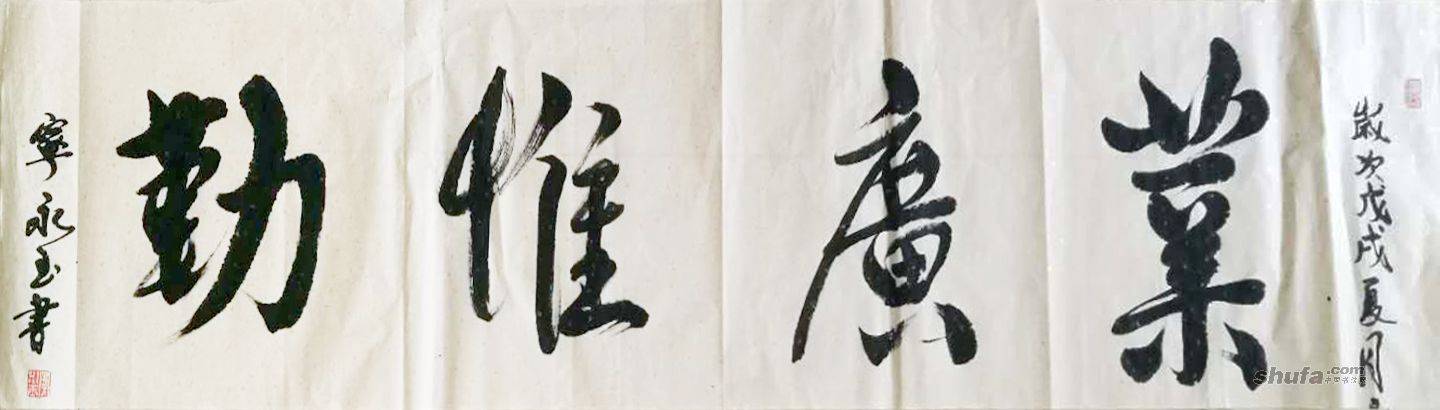 歲次戊戌夏月
業廣惟勤
寧永玉書
shufa.com